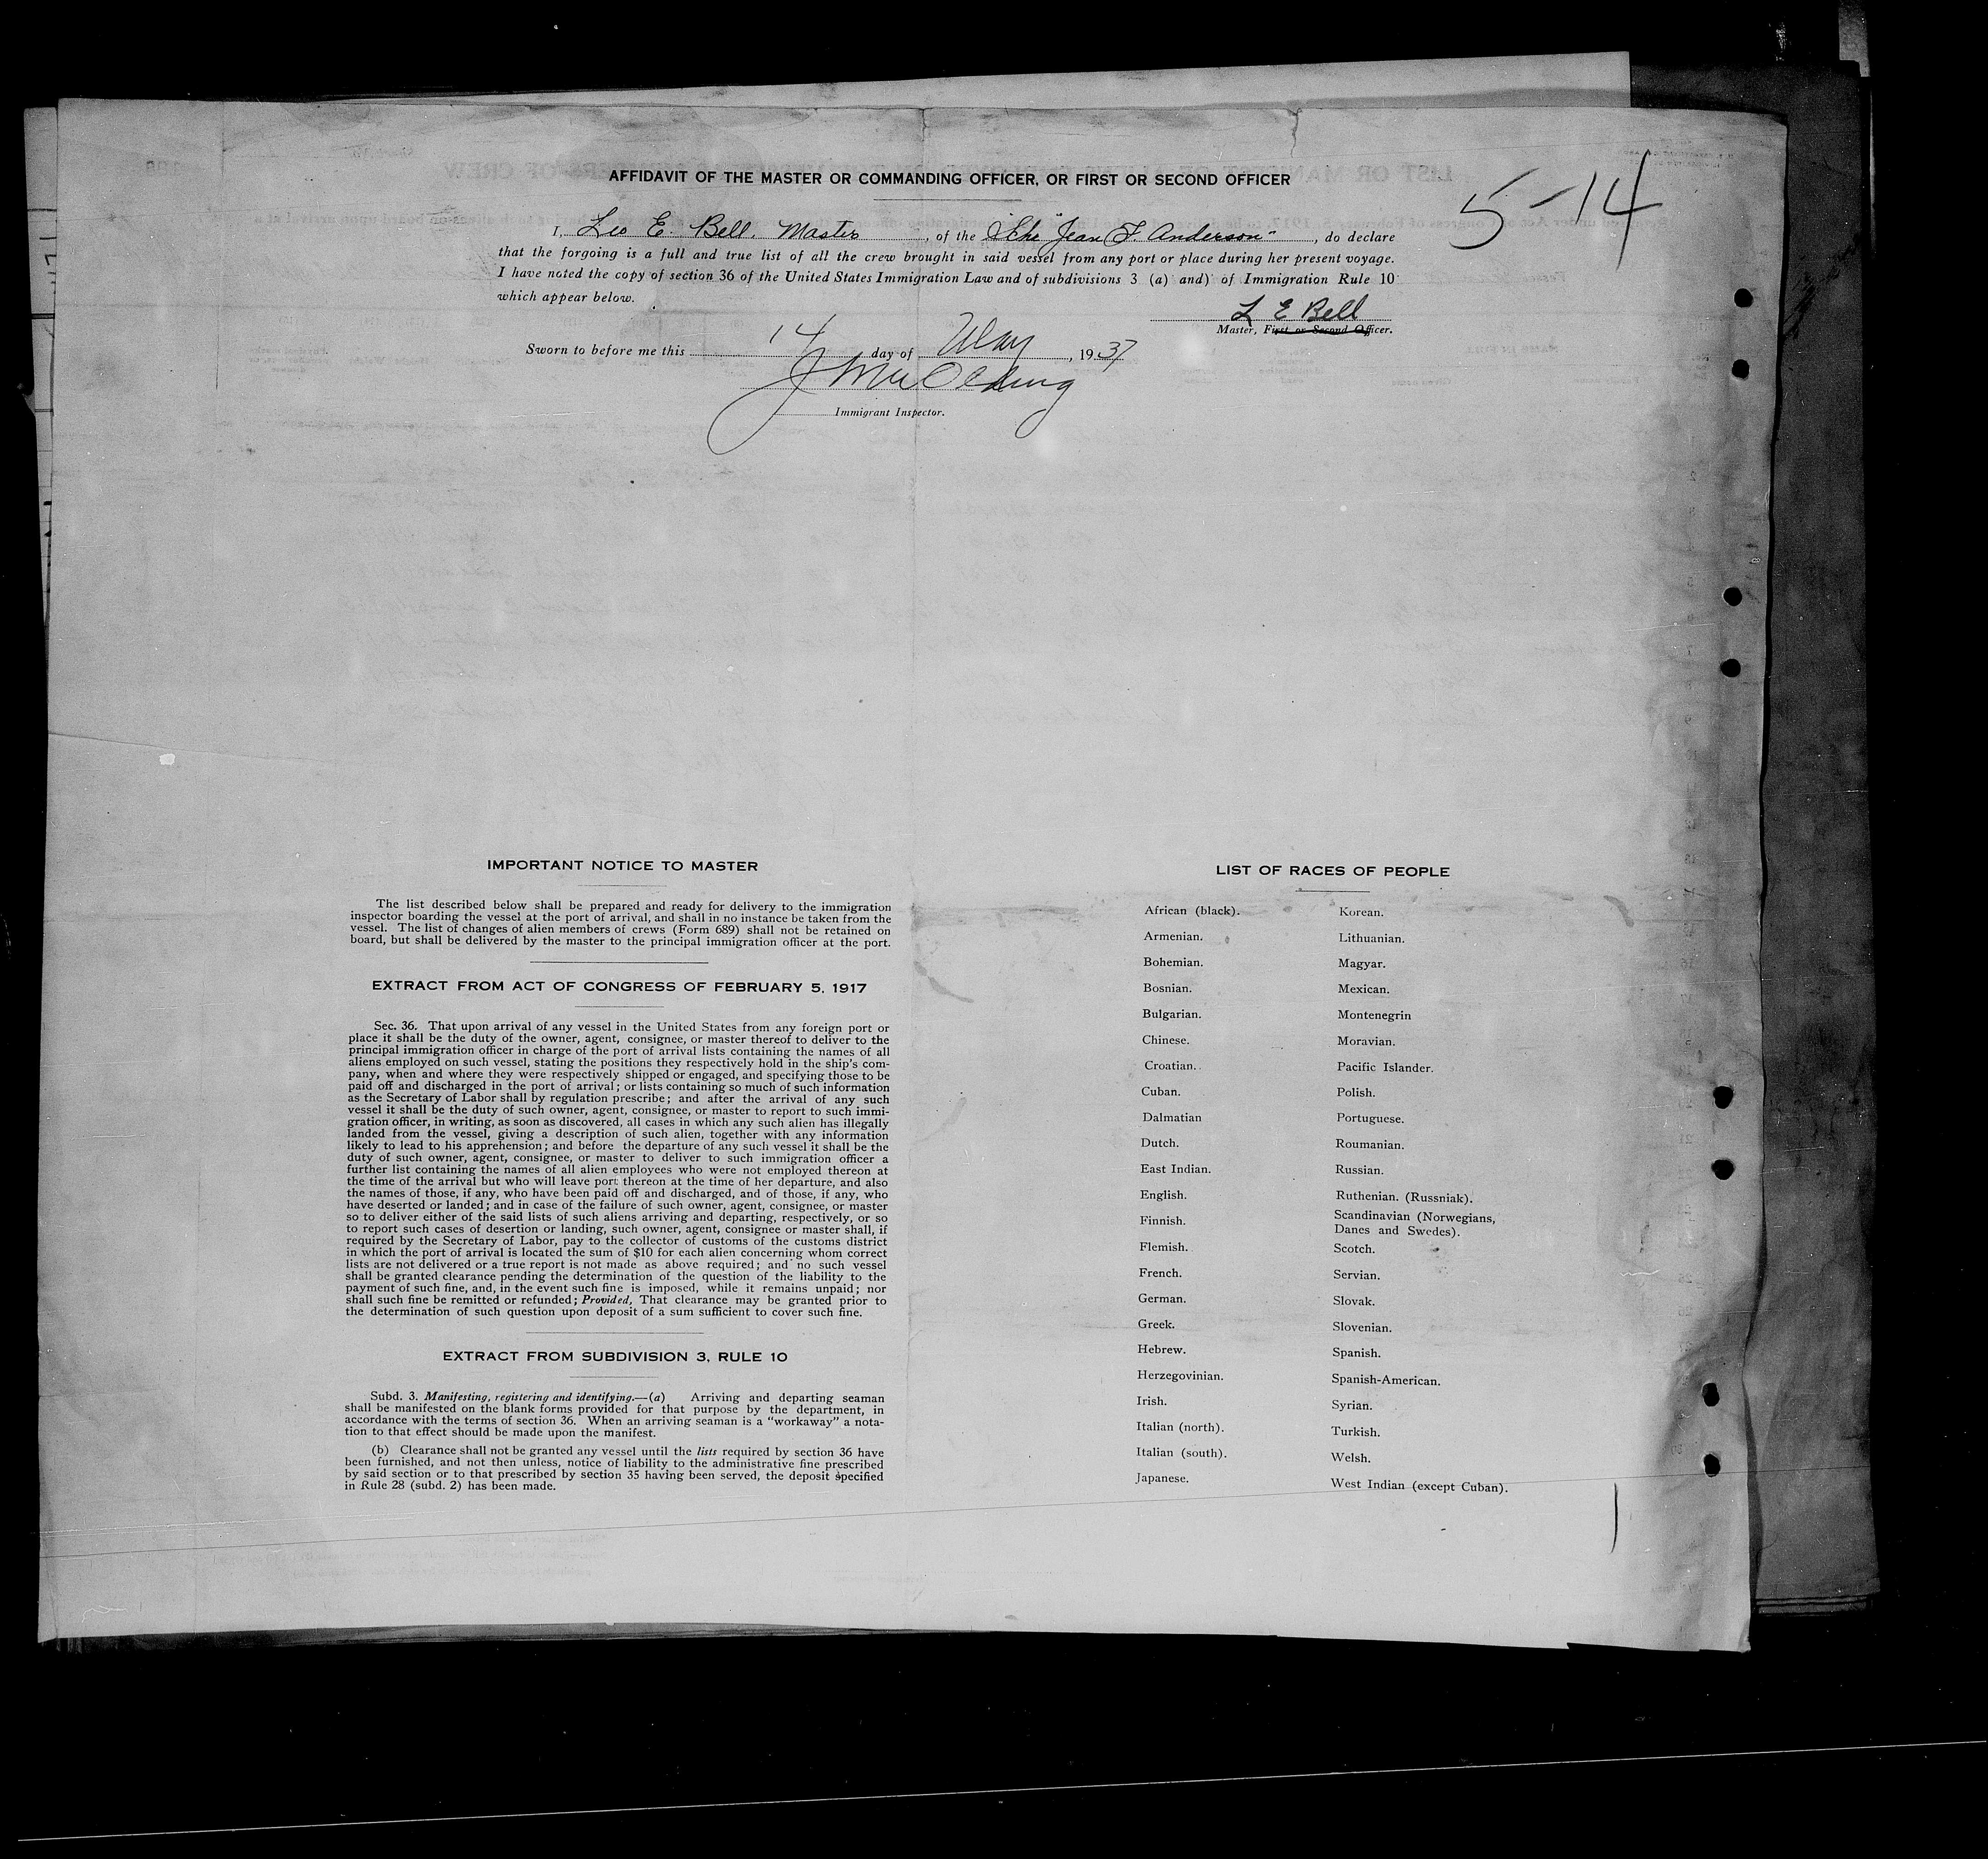 5-14
AFFIDAVIT OF THE MASTER OR COMMANDING OFFICER, OR FIRST OR SECOND OFFICER
I, Leo E. Bell, Master, of the "Jean F. Anderson", do declare
that the forgoing is a full and true list of all the crew brought in said vessel from any port or place during her present voyage.
I have noted the copy of section 36 of the United States Immigration Law and of subdivisions 3 (a) and) of Immigration Rule 10
which appear below.
L E Bell
Master, First or Second Officer.
Sworn to before me this 14 day of May, 1937
Immigrant Inspector.
IMPORTANT NOTICE TO MASTER
The list described below shall be prepared and ready for delivery to the immigration
inspector boarding the vessel at the port of arrival, and shall in no instance be taken from the
vessel. The list of changes of alien members of crews (Form 689) shall not be retained on
board, but shall be delivered by the master to the principal immigration officer at the port.
EXTRACT FROM ACT OF CONGRESS OF FEBRUARY 5, 1917
Sec. 36. That upon arrival of any vessel in the United States from any foreign port or
place it shall be the duty of the owner, agent, consignee, or master thereof to deliver to the
principal immigration officer in charge of the port of arrival lists containing the names of all
aliens employed on such vessel, stating the positions they respectively hold in the ship's com-
pany, when and where they were respectively shipped or engaged, and specifying those to be
paid off and discharged in the port of arrival; or lists containing so much of such information
as the Secretary of Labor shall by regulation prescribe; and after the arrival of any such
vessel it shall be the duty of such owner, agent, consignee, or master to report to such immi-
gration officer, in writing, as soon as discovered, all cases in which any such alien has illegally
landed from the vessel, giving a description of such alien, together with any information
likely to lead to his apprehension; and before the departure of any such vessel it shall be the
duty of such owner, agent, consignee, or master to deliver to such immigration officer a
further list containing the names of all alien employees who were not employed thereon at
the time of the arrival but who will leave port thereon at the time of her departure, and also
the names of those, if any, who have been paid off and discharged, and of those, if any, who
have deserted or landed; and in case of the failure of such owner, agent, consignee, or master
so to deliver either of the said lists of such aliens arriving and departing, respectively, or so
to report such cases of desertion or landing, such owner, agent, consignee or master shall, if
required by the Secretary of Labor, pay to the collector of customs of the customs district
in which the port of arrival is located the sum of $10 for each alien concerning whom correct
lists are not delivered or a true report is not made as above required; and no such vessel
shall be granted clearance pending the determination of the question of the liability to the
payment of such fine, and, in the event such fine is imposed, while it remains unpaid; nor
shall such fine be remitted or refunded; Provided, That clearance may be granted prior to
the determination of such question upon deposit of a sum sufficient to cover such fine.
EXTRACT FROM SUBDIVISION 3, RULE 10
Subd. 3. Manifesting, registering and identifying.—(a) Arriving and departing seaman
shall be manifested on the blank forms provided for that purpose by the department, in
accordance with the terms of section 36. When an arriving seaman is a "workaway" a nota-
tion to that effect should be made upon the manifest.
(b) Clearance shall not be granted any vessel until the lists required by section 36 have
been furnished, and not then unless, notice of liability to the administrative fine prescribed
by said section or to that prescribed by section 35 having been served, the deposit specified
in Rule 28 (subd. 2) has been made.
LIST OF RACES OF PEOPLE
African (black).
Armenian.
Bohemian.
Bosnian.
Bulgarian.
Chinese.
Croatian.
Cuban.
Dalmatian
Dutch.
East Indian.
English.
Finnish.
Flemish.
French.
German.
Greek.
Hebrew.
Herzegovinian.
Irish.
Italian (north).
Italian (south).
Japanese.
Korean.
Lithuanian.
Magyar.
Mexican.
Montenegrin
Moravian.
Pacific Islander.
Polish.
Portuguese.
Roumanian.
Russian.
Ruthenian. (Russniak).
Scandinavian (Norwegians,
Danes and Swedes).
Scotch.
Servian.
Slovak.
Slovenian.
Spanish.
Spanish-American.
Syrian.
Turkish.
Welsh.
West Indian (except Cuban).